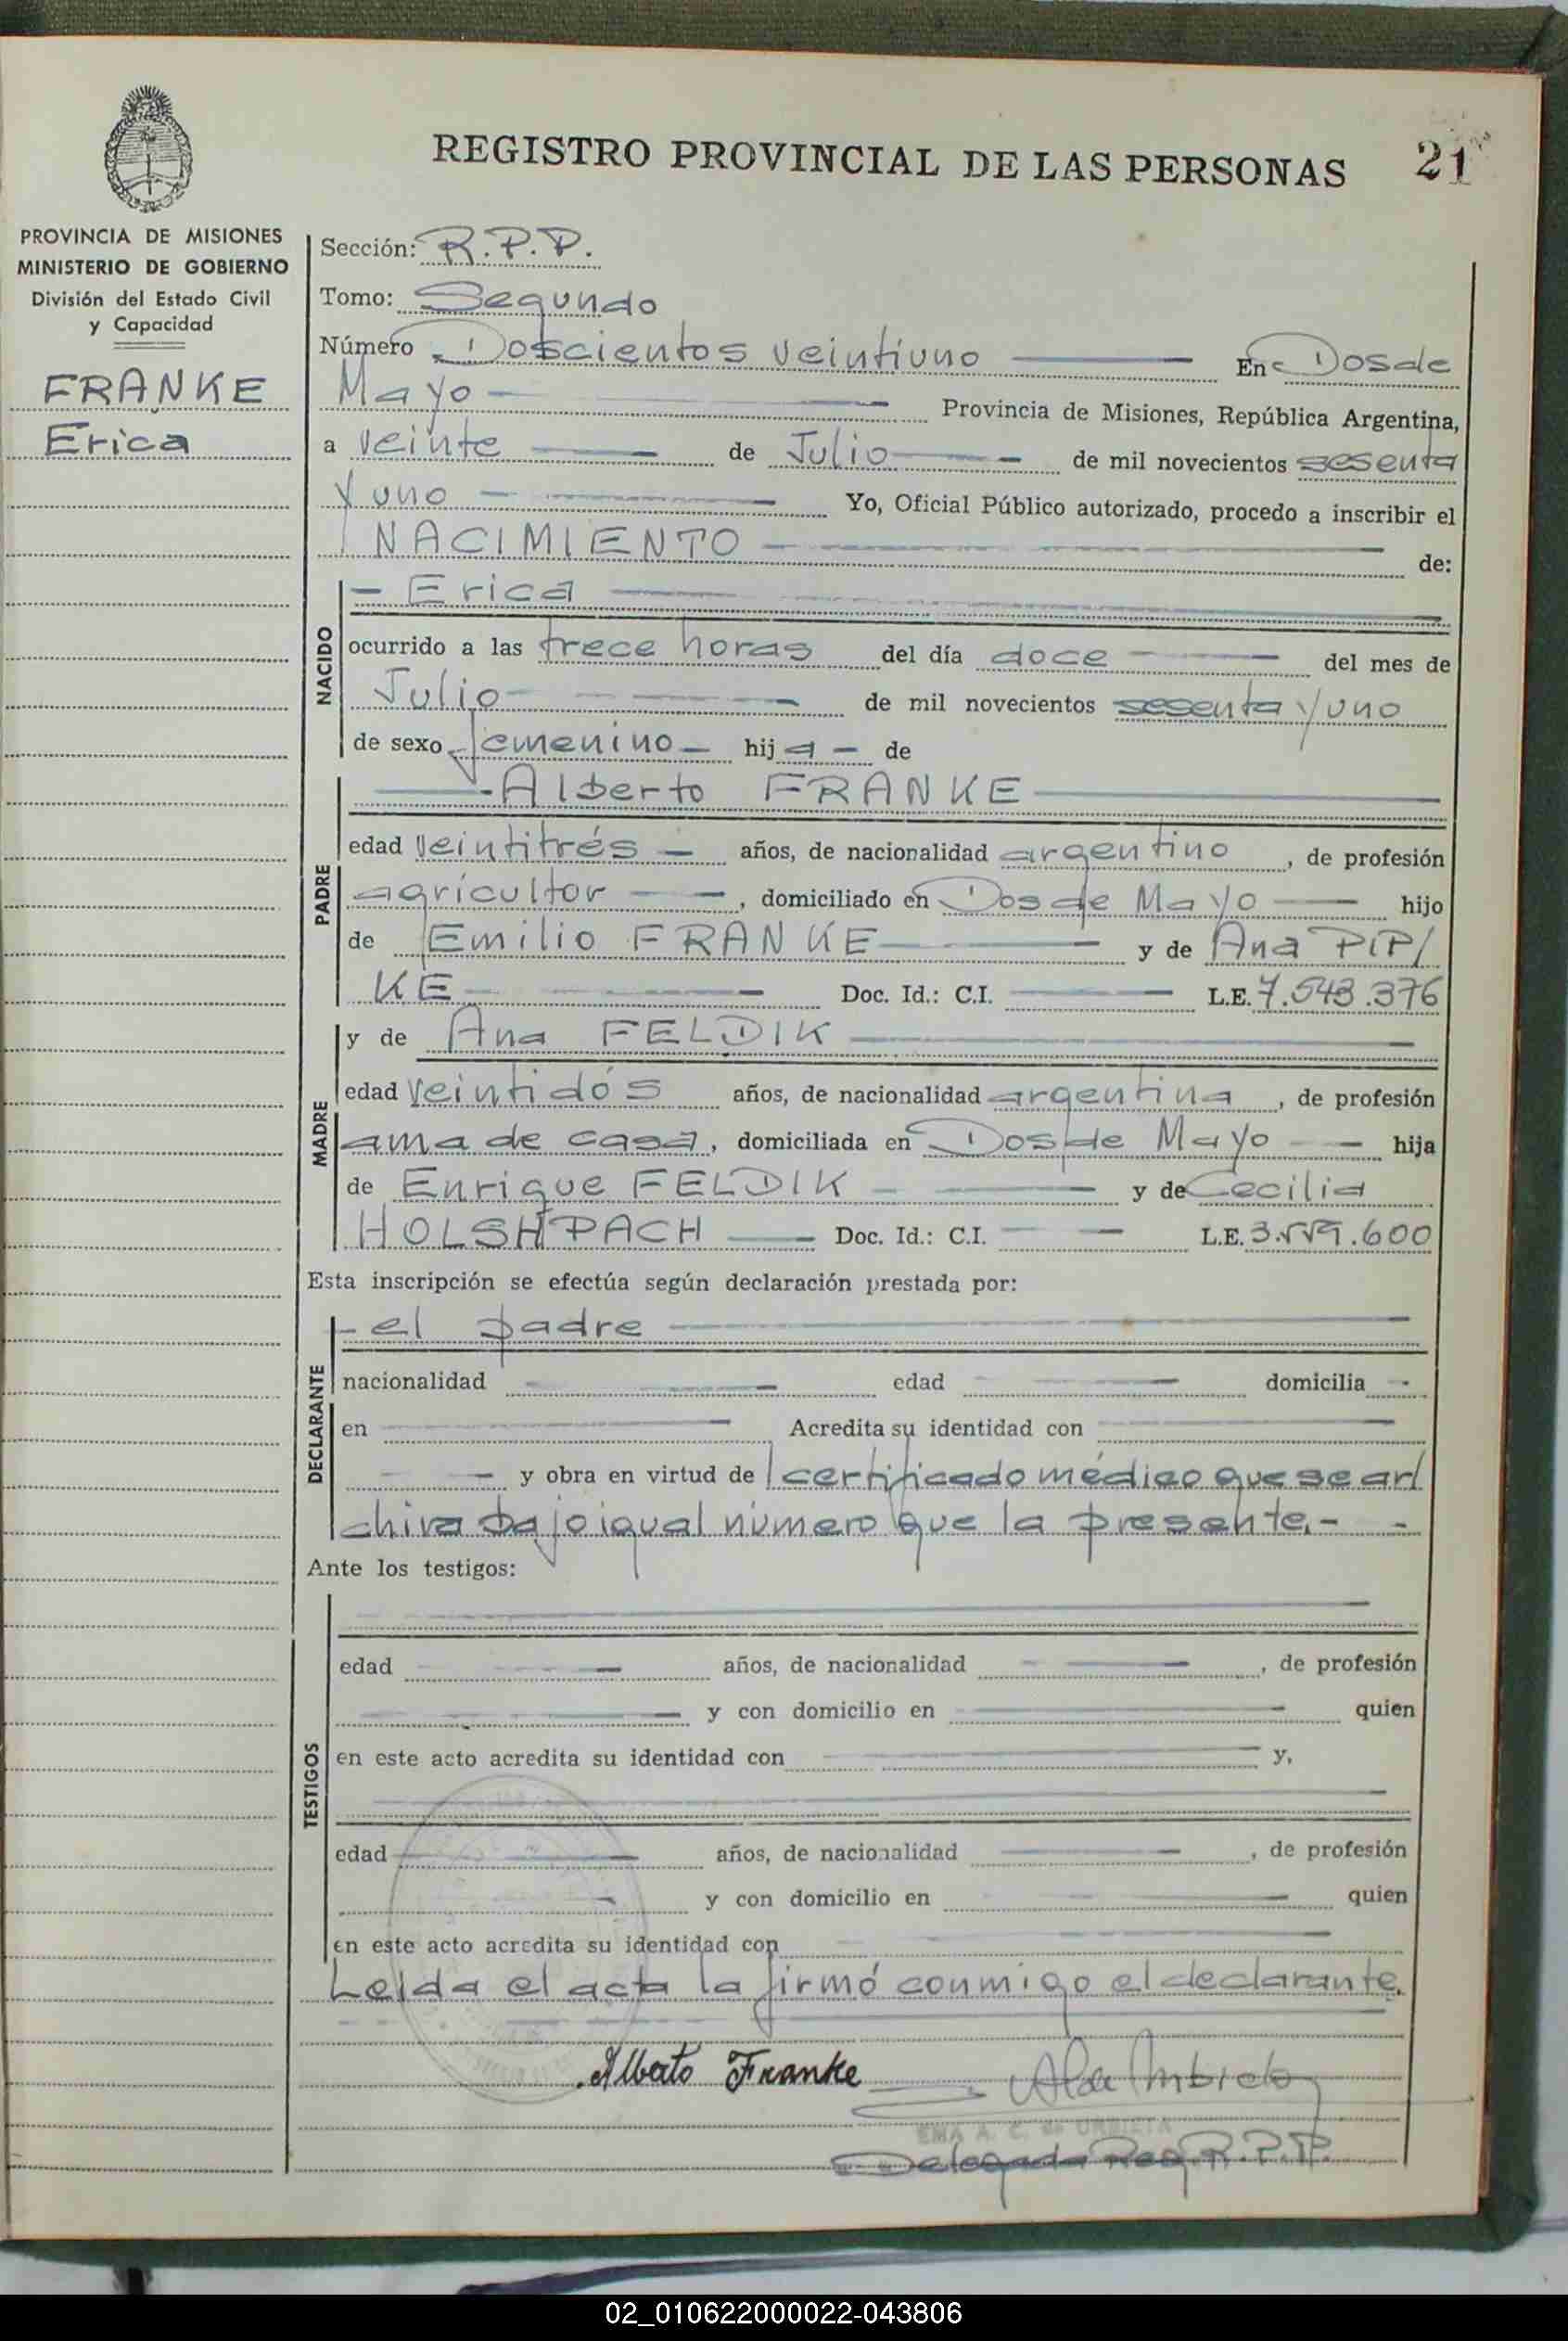 REGISTRO PROVINCIAL DE LAS PERSONAS 21
PROVINCIA DE MISIONES
MINISTERIO DE GOBIERNO
División del Estado Civil
y Capacidad
FRANKE
Erica
Sección: R.P.P.
Tomo: Segundo
Número Doscientos veintiuno En Dos de
Mayo Provincia de Misiones, República Argentina,
a veinte de Julio de mil novecientos sesenta
y uno Yo, Oficial Público autorizado, procedo a inscribir el
NACIMIENTO de:
NACIDO
Erica
ocurrido a las trece horas del día doce del mes de
Julio de mil novecientos sesenta y uno
de sexo femenino hij a de
PADRE
Alberto FRANKE
edad veintitrés años, de nacionalidad argentino, de profesión
agricultor, domiciliado en Dos de Mayo hijo
de Emilio FRANKE y de Ana PIP/
KE Doc. Id.: C.I. L.E. 7.543.376
MADRE
y de Ana FELDIK
edad veintidós años, de nacionalidad argentina, de profesión
ama de casa, domiciliada en Dos de Mayo hija
de Enrique FELDIK y de Cecilia
HOLSHPACH Doc. Id.: C.I. L.E.
Esta inscripción se efectúa según declaración prestada por:
DECLARANTE
el padre
nacionalidad edad domicilia
en Acredita su identidad con
y obra en virtud de l certificado médico que se ar/
chiva bajo igual número que la presente.-
Ante los testigos:
TESTIGOS
edad años, de nacionalidad, de profesión
y con domicilio en quien
en este acto acredita su identidad con y,
edad años, de nacionalidad, de profesión
y con domicilio en quien
en este acto acredita su identidad con
Leída el acta la firmó conmigo el declarante.
Alberto Franke
EMA A. C. de URBIETA
Delegada Reg R.P.P.
02_010622000022-043806